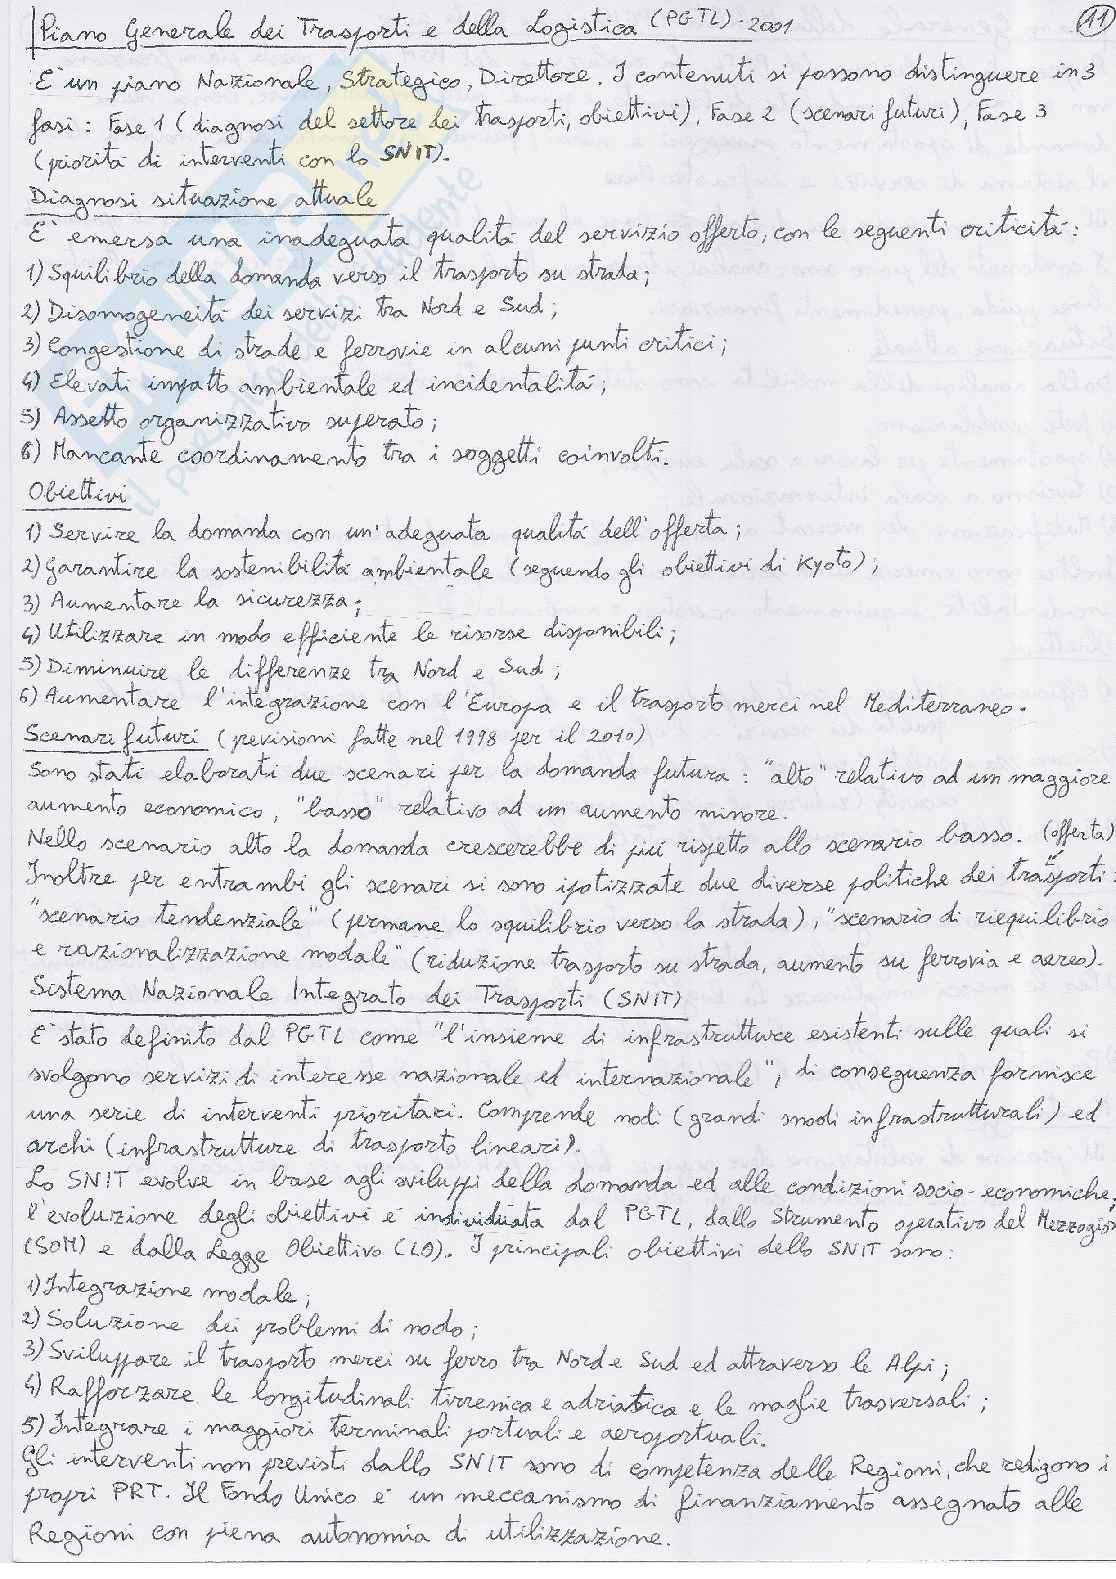 Piano Generale dei Trasporti e della Logistica (PGTL). 2001
11
E' un piano Nazionale, Strategico, Direttore. I contenuti si possono distinguere in 3
fasi: Fase 1 (diagnosi del settore dei trasporti, obiettivi), Fase 2 (scenari futuri), Fase 3
(priorità di interventi con lo SNIT).
Diagnosi situazione attuale
E' emersa una inadeguata qualità del servizio offerto, con le seguenti criticità:
1) Squilibrio della domanda verso il trasporto su strada;
2) Disomogeneità dei servizi tra Nord e Sud;
3) Congestione di strade e ferrovie in alcuni punti critici;
4) Elevati impatto ambientale ed incidentalità;
5) Assetto organizzativo superato;
6) Mancante coordinamento tra i soggetti coinvolti.
Obiettivi
1) Servire la domanda con un'adeguata qualità dell'offerta;
2) Garantire la sostenibilità ambientale (seguendo gli obiettivi di Kyoto);
3) Aumentare la sicurezza;
4) Utilizzare in modo efficiente le risorse disponibili;
5) Diminuire le differenze tra Nord e Sud;
6) Aumentare l'integrazione con l'Europa e il trasporto merci nel Mediterraneo.
Scenari futuri (previsioni fatte nel 1998 per il 2010)
Sono stati elaborati due scenari per la domanda futura: "alto" relativo ad un maggiore
aumento economico, "basso" relativo ad un aumento minore.
Nello scenario alto la domanda crescerebbe di più rispetto allo scenario basso. (offerta)
Inoltre per entrambi gli scenari si sono ipotizzate due diverse politiche dei trasporti:
"scenario tendenziale" (permane lo squilibrio verso la strada), "scenario di riequilibrio
e razionalizzazione modale" (riduzione trasporto su strada, aumento su ferrovia e aereo).
Sistema Nazionale Integrato dei Trasporti (SNIT)
E' stato definito dal PGTL come "l'insieme di infrastrutture esistenti sulle quali si
svolgono servizi di interesse nazionale ed internazionale", di conseguenza fornisce
una serie di interventi prioritari. Comprende nodi (grandi snodi infrastrutturali) ed
archi (infrastrutture di trasporto lineari).
Lo SNIT evolve in base agli sviluppi della domanda ed alle condizioni socio-economiche;
l'evoluzione degli obiettivi è individuata dal PGTL, dallo Strumento operativo del Mezzogio
(SOM) e dalla Legge Obiettivo (LO). I principali obiettivi dello SNIT sono:
1) Integrazione modale;
2) Soluzione dei problemi di nodo;
3) Sviluppare il trasporto merci su ferro tra Nord e Sud ed attraverso le Alpi;
4) Rafforzare le longitudinali tirrenica e adriatica e le maglie trasversali;
5) Integrare i maggiori terminali portuali e aeroportuali.
Gli interventi non previsti dallo SNIT sono di competenza delle Regioni, che redigono i
propri PRT. Il Fondo Unico è un meccanismo di finanziamento assegnato alle
Regioni con piena autonomia di utilizzazione.